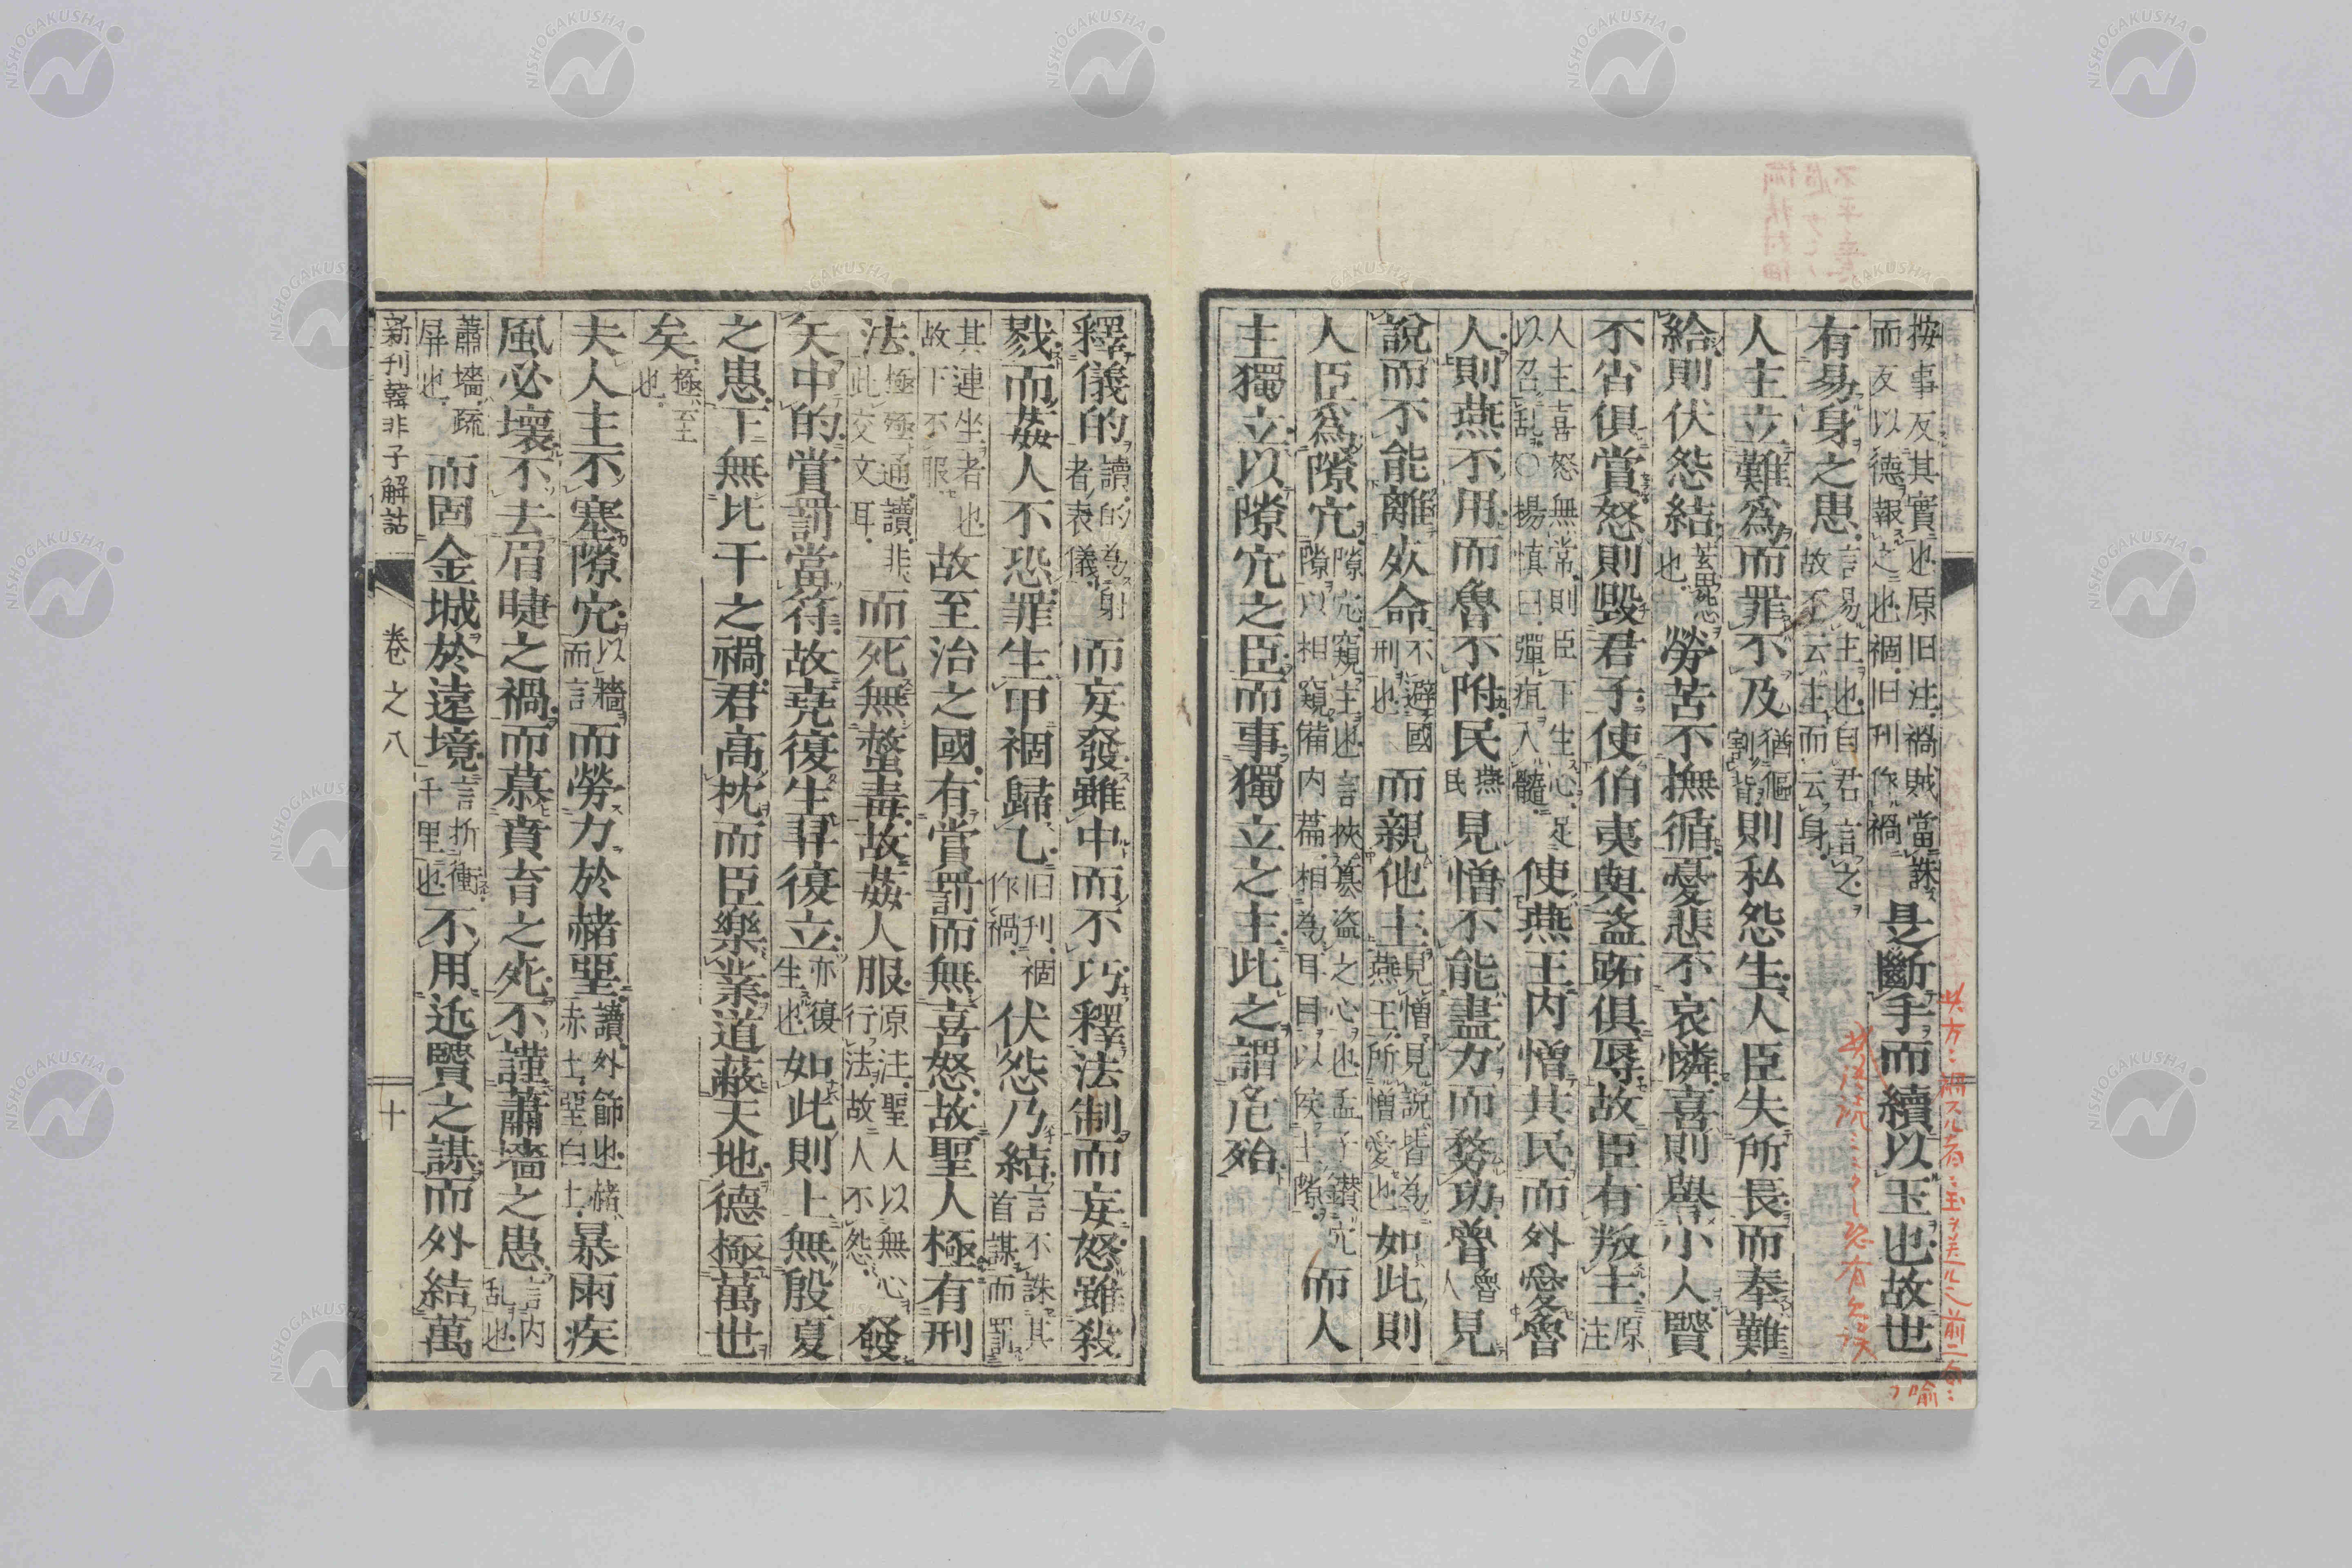 按事反其實也原旧注禍賊當誅
而反以德報之也禍旧刊作禍是斷手而續以玉也故世
有易身之患言易主也自君言之
故不云主而云身
人主立難爲而罪不及猶傴
割背則私怨生人臣失所長而奉難
給則伏怨結
也勞苦不撫循憂悲不哀憐喜則譽小人賢
不肖俱賞怒則毀君子使伯夷與盜跖俱辱故臣有叛主原
注
人主喜怒無常則臣下生心足
以召乱〇揚慎曰彈疽入髓使燕王内憎其民而外愛魯
人則燕不用而魯不附民燕
民見憎不能盡力而務功魯魯
人見
說而不能離死命不避國
刑也而親他主見憎見說皆為
燕王所憎愛也如此則
人臣爲隙穴隙穴窺主也言挾篡盜之心也孟子鑽穴
隙以相窺備内篇相為耳目以候主隙而人
主獨立以隙穴之臣而事獨立之主此之謂危殆
釋儀的讀的為射
者表儀而妄發雖中而不巧釋法制而妄怒雖殺
戮而姦人不恐罪生甲禍歸乙旧刊禍
作禍伏怨乃結言不誅其
首謀而罰
其連坐者也
故下不服故至治之國有賞罰而無喜怒故聖人極有刑
法極殛通讀非
此交文耳而死無螫毒故姦人服原注聖人以無心
行法故人不怨發
矢中的賞罰當符故堯復生羿復立亦復
生也如此則上無殷夏
之患下無比干之禍君高枕而臣樂業道蔽天地德極萬世
矣極至
也
夫人主不塞隙穴以牆
而言而勞力於赭堊讀外飾也赭
赤土堊白土暴雨疾
風必壞不去眉睫之禍而慕賁育之死不謹蕭墻之患言内
乱也
蕭墻疏
屏也而固金城於遠境言折衝
千里也不用近賢之謀而外結萬
新刊韓非子解詁
卷之八
十